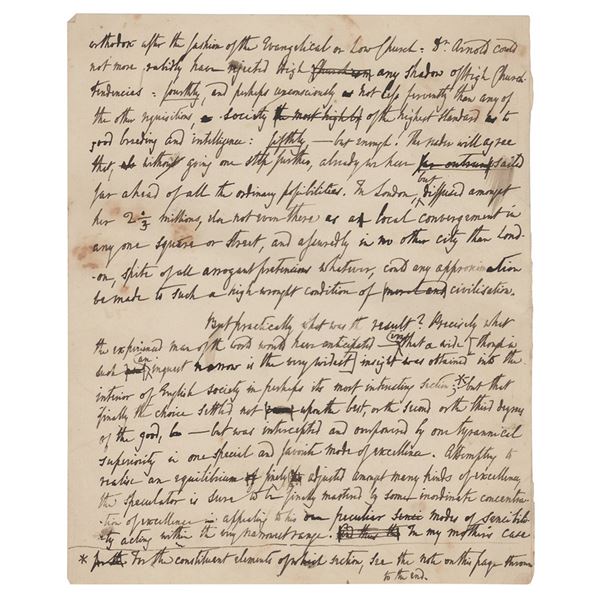 orthodox after the fashion of the Evangelical or Low Church: Dr Arnold could
not more rabidly have rejected High Church any shadow of High Church
tendencies: fourthly, and perhaps unconsciously not less fervently than any of
the other requisitions, society the most highly of the highest standard as to
good breeding and intelligence: fifthly, — but enough. The reader will agree
that, without going one step further, already we have far outrun sailed
far ahead of all the ordinary possibilities. In London, but diffused amongst
her 2 1/3 millions, else not even there as a local convergement in
any one square or street, and assuredly in no other city than Lond-
-on, spite of all arrogant pretensions whatever, could any approximation
be made to such a high-wrought condition of moral and civilisation.
But practically what was the result? Precisely what
the experienced man of the world would have anticipated that a wide (though in
such an inquest narrow is the very widest) was obtained into the
interior of English society in perhaps its most interesting section:* but that
finally the choice settled not upon the best, or the second or the third degrees
of the good, — but was intercepted and overpowered by one tyrannical
superiority in one special and favorite mode of excellence. Attempting to
realise an equilibrium finely adjusted amongst many kinds of excellency,
the speculator is sure to be finally mastered by some inordinate concentra-
tion of excellence appealing to his own peculiar sense modes of sensibili-
ty acting within the very narrowest range. And thus In my mother's case
* For the constituent elements of which section, see the note on this page thrown
to the end.